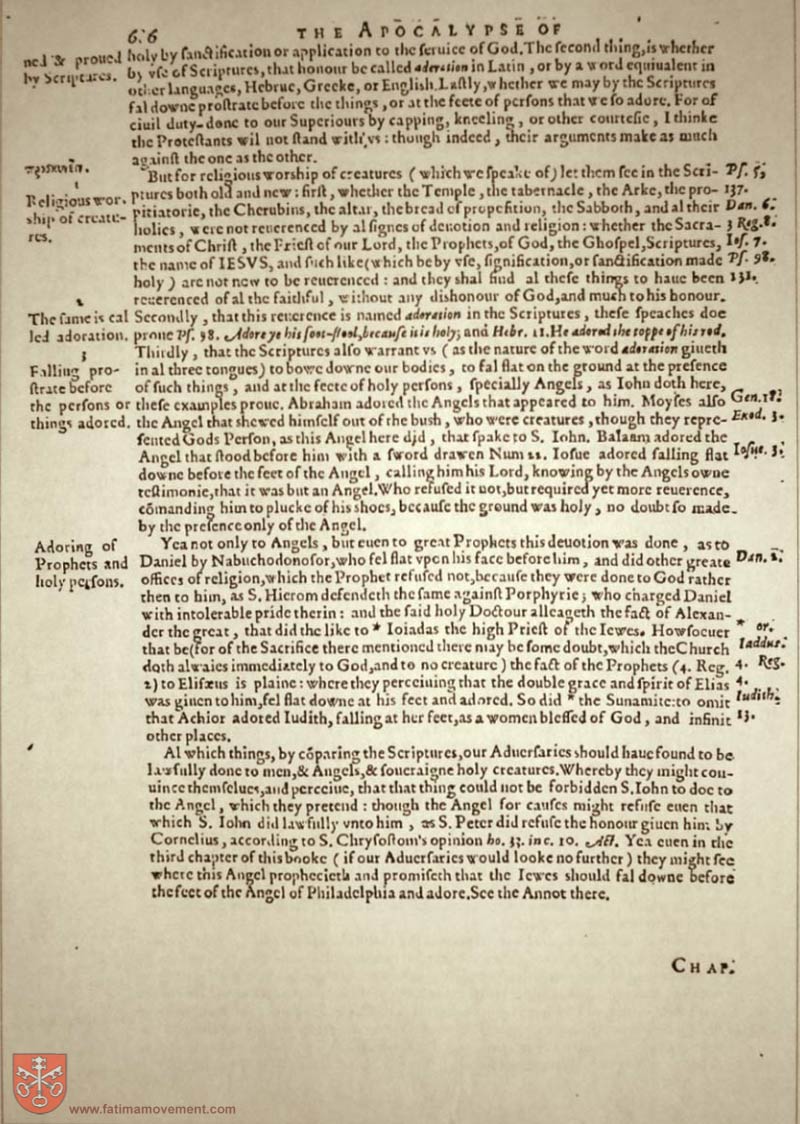 6.6 THE APOCALYPSE OF
ned & proued
by Scriptures.
holy by ſanctification or application to the ſeruice of God. The ſecond thing, is whether
by vſe of Scriptures, that honour be called adoration in Latin, or by a word equiualent in
other languages, Hebrue, Greeke, or English. Laſtly, whether we may by the Scriptures
fal downe proſtrate before the things, or at the feete of perſons that we ſo adore. For of
ciuil duty done to our Superiours by capping, kneeling, or other courteſie, I thinke
the Proteſtants wil not ſtand with vs: though indeed, their arguments make as much
againſt the one as the other.
1
Religious wor-
ship of creatu-
res.
But for religious worship of creatures (which we ſpeake of) let them ſee in the Scri-
ptures both old and new: firſt, whether the Temple, the tabernacle, the Arke, the pro-
pitiatorie, the Cherubins, the altar, the bread of propoſition, the Sabboth, and al their
holies, were not reuerenced by al ſignes of deuotion and religion: whether the Sacra-
ments of Chriſt, the Prieſt of our Lord, the Prophets, of God, the Ghoſpel, Scriptures,
the name of IESVS, and ſuch like (which be by vſe, ſignification, or ſanctification made
holy) are not now to be reuerenced: and they shal find al theſe things to haue been
reuerenced of al the faithful, without any dishonour of God, and much to his honour.
Pſ. 5,
137.
Dan. 6.
3 Reg. 8.
Ioſ. 7.
Pſ. 98.
131.
2
The ſame is cal
led adoration.
Secondly, that this reuerence is named adoration in the Scriptures, theſe ſpeaches doe
proue Pſ. 98. Adore ye his foot-ſtool, becauſe it is holy; and Hebr. 11. He adored the toppe of his rod.
3
Falling pro-
ſtrate before
the perſons or
things adored.
Thirdly, that the Scriptures alſo warrant vs (as the nature of the word adoration giueth
in al three tongues) to bowe downe our bodies, to fal flat on the ground at the preſence
of ſuch things, and at the feete of holy perſons, ſpecially Angels, as Iohn doth here,
theſe examples proue. Abraham adored the Angels that appeared to him. Moyſes alſo
the Angel that shewed himſelf out of the bush, who were creatures, though they repre-
ſented Gods Perſon, as this Angel here did, that ſpake to S. Iohn. Balaam adored the
Angel that ſtood before him with a ſword drawen Num 22. Ioſue adored falling flat
downe before the feet of the Angel, calling him his Lord, knowing by the Angels owne
teſtimonie, that it was but an Angel. Who refuſed it not, but required yet more reuerence,
cōmanding him to plucke of his shoes, becauſe the ground was holy, no doubt ſo made
by the preſence only of the Angel.
Gen. 18.
Exod. 3.
Ioſue. 3.
Adoring of
Prophets and
holy perſons.
Yea not only to Angels, but euen to great Prophets this deuotion was done, as to
Daniel by Nabuchodonoſor, who fel flat vpon his face before him, and did other greate
offices of religion, which the Prophet refuſed not, becauſe they were done to God rather
then to him, as S. Hierom defendeth the ſame againſt Porphyrie; who charged Daniel
with intolerable pride therin: and the ſaid holy Doctour alleageth the fact of Alexan-
der the great, that did the like to * Ioiadas the high Prieſt of the Iewes. Howſoeuer
that be (for of the Sacrifice there mentioned there may be ſome doubt, which the Church
doth alwaies immediately to God, and to no creature) the fact of the Prophets (4. Reg.
2) to Eliſæus is plaine: where they perceiuing that the double grace and ſpirit of Elias
was giuen to him, fel flat downe at his feet and adored. So did * the Sunamite: to omit
that Achior adored Iudith, falling at her feet, as a women bleſſed of God, and infinit
other places.
Dan. 2.
* or.
Iaddus.
4. Reg.
4.
Iudith.
13.
Al which things, by cōparing the Scriptures, our Aduerſaries should haue found to be
lawfully done to men, & Angels, & ſoueraigne holy creatures. Whereby they might con-
uince themſelues, and perceiue, that that thing could not be forbidden S. Iohn to doe to
the Angel, which they pretend: though the Angel for cauſes might refuſe euen that
which S. Iohn did lawfully vnto him, as S. Peter did refuſe the honour giuen him by
Cornelius, according to S. Chryſoſtom's opinion ho. 33. in c. 10. Act. Yea euen in the
third chapter of this booke (if our Aduerſaries would looke no further) they might ſee
where this Angel prophecieth and promiſeth that the Iewes should fal downe before
the feet of the Angel of Philadelphia and adore. See the Annot there.
CHAP.
www.fatimamovement.com